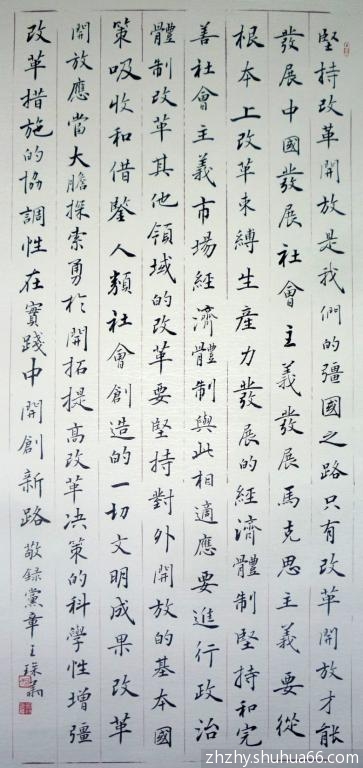 堅持改革開放是我們的彊國之路只有改革開放才能
發展中國發展社會主義發展馬克思主義要從
根本上改革束縛生產力發展的經濟體制堅持和完
善社會主義市場經濟體制與此相適應要進行政治
體制改革其他領域的改革要堅持對外開放的基本國
策吸收和借鑒人類社會創造的一切文明成果改革
開放應當大膽探索勇於開拓提高改革決策的科學性增彊
改革措施的協調性在實踐中開創新路敬錄黨章王
zhzhy.shuhua66.com